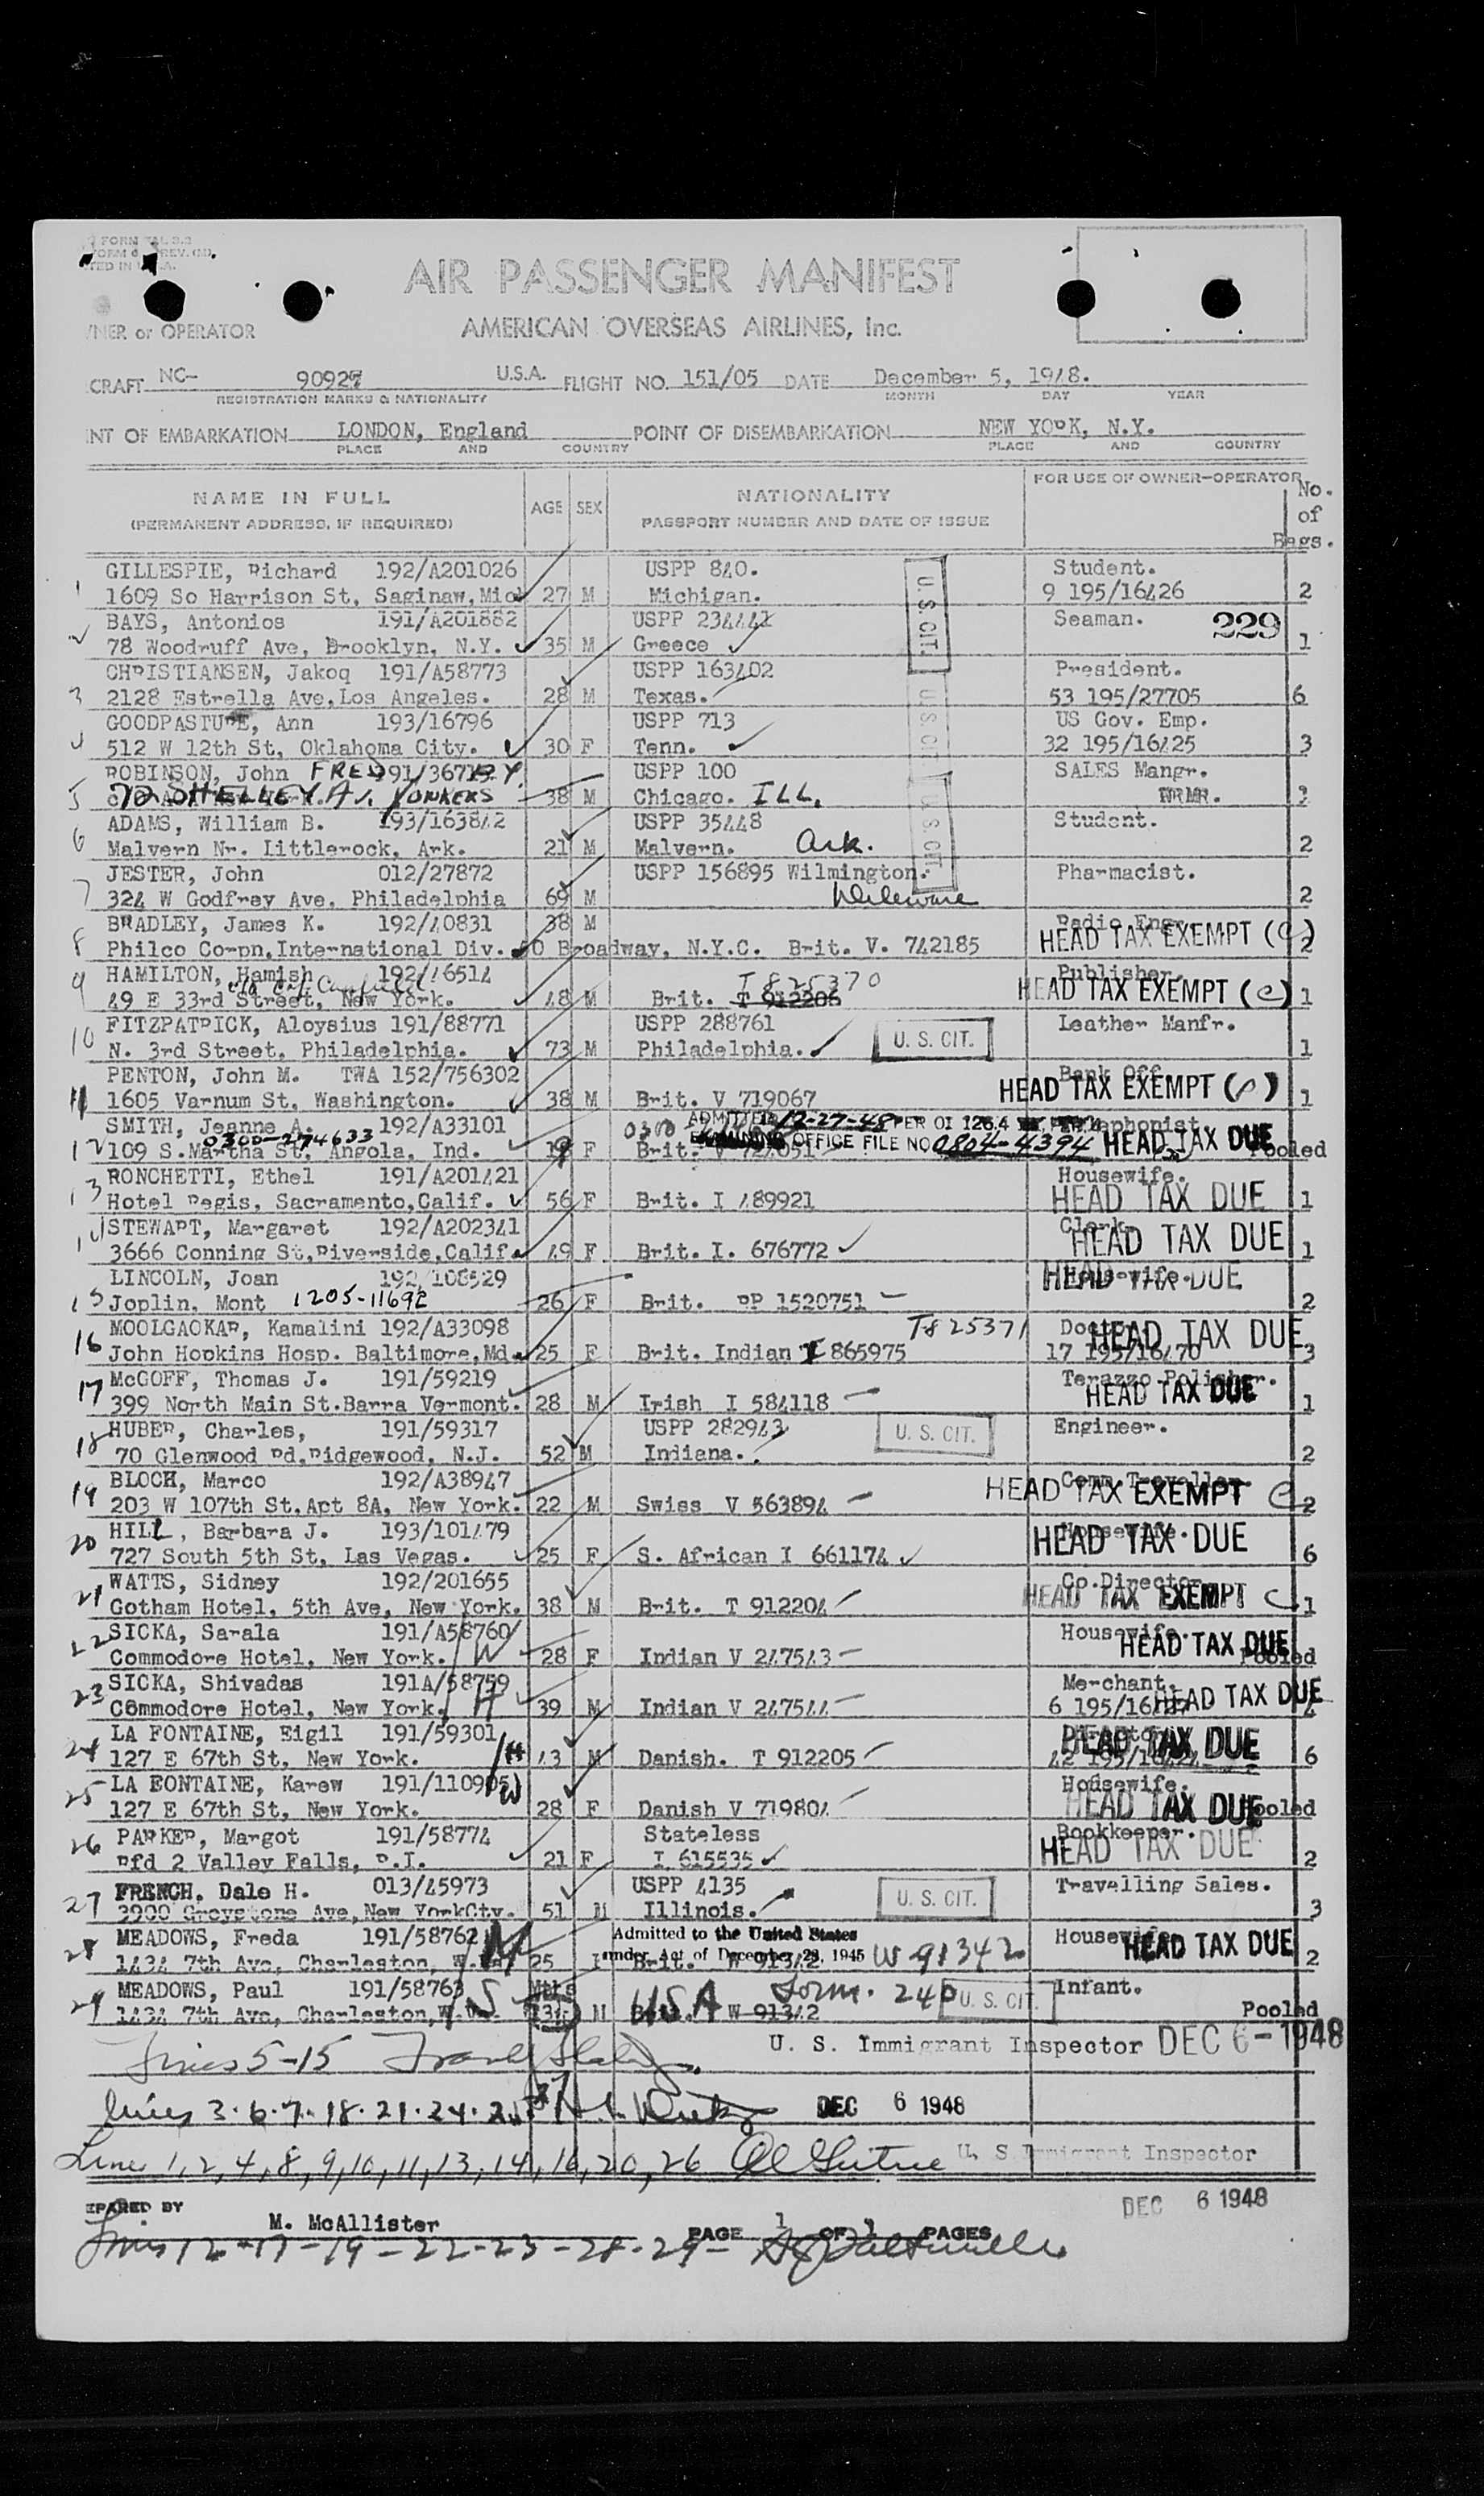 FORM
REV.
AIR PASSENGER MANIFEST
OWNER or OPERATOR AMERICAN OVERSEAS AIRLINES, Inc.
CRAFT NC- 90927 U.S.A. FLIGHT NO. 151/05 DATE December 5, 1948.
REGISTRATION MARKS & NATIONALITY MONTH DAY YEAR
INT OF EMBARKATION LONDON, England POINT OF DISEMBARKATION NEW YORK, N.Y.
PLACE AND COUNTRY PLACE AND COUNTRY
NAME IN FULL AGE SEX NATIONALITY FOR USE OF OWNER-OPERATOR No. of Bags.
(PERMANENT ADDRESS, IF REQUIRED) PASSPORT NUMBER AND DATE OF ISSUE
GILLESPIE, Richard 192/A201026 USPP 840. Student.
1 1609 So Harrison St, Saginaw, Mich 27 M Michigan. 9 195/16426 2
BAYS, Antonios 191/A201882 USPP 234441 Seaman. 229
2 78 Woodruff Ave, Brooklyn, N.Y. 35 M Greece U.S. CIT. 1
CHRISTIANSEN, Jakoq 191/A58773 USPP 163402 President.
3 2128 Estrella Ave, Los Angeles. 28 M Texas. 53 195/27705 6
GOODPASTURE, Ann 193/16796 USPP 713 US Gov. Emp.
4 512 W 12th St, Oklahoma City. 30 F Tenn. U S CIT 32 195/16425 3
ROBINSON, John FRED 191/36719 USPP 100 SALES Mangr.
5 72 SHELLEY AV. YONKERS 38 M Chicago. ILL.
ADAMS, William B. 193/163842 USPP 35448 Student.
6 Malvern Nr. Littlerock, Ark. 21 M Malvern. Ark. U S CIT 2
JESTER, John 012/27872 USPP 156895 Wilmington. Pharmacist.
7 324 W Godfrey Ave, Philadelphia 69 M Delaware 2
BRADLEY, James K. 192/40831 38 M Radio Engr.
8 Philco Corpn, International Div. 40 Broadway, N.Y.C. Brit. V. 742185 HEAD TAX EXEMPT (C) 2
HAMILTON, Hamish 192/16514 T 825370 Publisher.
9 49 E 33rd Street, New York. 48 M Brit. T 912206 HEAD TAX EXEMPT (C) 1
FITZPATRICK, Aloysius 191/88771 USPP 288761 Leather Manfr.
10 N. 3rd Street, Philadelphia. 73 M Philadelphia. U. S. CIT. 1
PENTON, John M. TWA 152/756302 Bank Off.
11 1605 Varnum St, Washington. 38 M Brit. V 719067 HEAD TAX EXEMPT 1
SMITH, Jeanne A. 192/A33101 ADMITTED 12-27-48 PER OI 126.4
0300-274633
12 109 S. Martha St, Angola, Ind. F Brit. OFFICE FILE NO 0804-4394 HEAD TAX DUE Pooled
RONCHETTI, Ethel 191/A201421 Housewife.
13 Hotel Regis, Sacramento, Calif. 56 F Brit. I 489921 HEAD TAX DUE 1
STEWART, Margaret 192/A202341 Clerk.
14 3666 Conning St, Riverside, Calif. 49 F Brit. I. 676772 HEAD TAX DUE 1
LINCOLN, Joan 192/108529 Housewife.
15 Joplin, Mont 1205-11692 26 F Brit. PP 1520751 HEAD TAX DUE 2
MOOLGAOKAR, Kamalini 192/A33098 T825371 Doctor.
16 John Hopkins Hosp. Baltimore, Md. 25 F Brit. Indian I 865975 17 195/16470 HEAD TAX DUE 3
McGOFF, Thomas J. 191/59219 Terazzo Polisher.
17 399 North Main St. Barra Vermont. 28 M Irish I 584118 HEAD TAX DUE 1
HUBER, Charles, 191/59317 USPP 282943 Engineer.
18 70 Glenwood Rd, Ridgewood, N.J. 52 M Indiana. U. S. CIT. 2
BLOCH, Marco 192/A38947 Comm. Traveller
19 203 W 107th St, Apt 8A, New York. 22 M Swiss V 563894 HEAD TAX EXEMPT C 2
HILL, Barbara J. 193/101479 Housewife.
20 727 South 5th St, Las Vegas. 25 F S. African I 661174 HEAD TAX DUE 6
WATTS, Sidney 192/201655 Co. Director
21 Gotham Hotel, 5th Ave, New York. 38 M Brit. T 912204 HEAD TAX EXEMPT C 1
SICKA, Sarala 191/A58760 Housewife.
22 Commodore Hotel, New York. W 28 F Indian V 247543 HEAD TAX DUE Pooled
SICKA, Shivadas 191A/58759 Merchant.
23 Commodore Hotel, New York. H 39 M Indian V 247544 6 195/16427 HEAD TAX DUE
LA FONTAINE, Eigil 191/59301
24 127 E 67th St, New York. H 43 M Danish. T 912205 HEAD TAX DUE 6
LA FONTAINE, Karew 191/110905 Housewife.
25 127 E 67th St, New York. W 28 F Danish V 719804 HEAD TAX DUE Pooled
PARKER, Margot 191/58774 Stateless Bookkeeper.
26 Rfd 2 Valley Falls, R.I. 21 F I 615535 HEAD TAX DUE 2
FRENCH, Dale H. 013/45973 USPP 4135 Travelling Sales.
27 3900 Greystone Ave, New York Cty. 51 M Illinois. U. S. CIT. 3
MEADOWS, Freda 191/58762 M Admitted to the United States Housewife
28 1434 7th Ave, Charleston, W.Va. 25 under Act of December 28, 1945 Brit. W 91342 W 91342 HEAD TAX DUE 2
MEADOWS, Paul 191/58763 S Mths Form. 240 Infant.
29 1434 7th Ave, Charleston, W.Va. M USA W 91342 U. S. CIT. Pooled
Lines 5-15 U. S. Immigrant Inspector DEC 6 - 1948
Lines 3.6.7.18.21.24.25.27 DEC 6 1948
Line 1, 2, 4, 8, 9, 10, 11, 13, 14, 16, 20, 26 U. S. Immigrant Inspector
DEC 6 1948
EPARED BY M. McAllister PAGE 1 OF 1 PAGES
Lines 12-17-19-22-23-28-29-